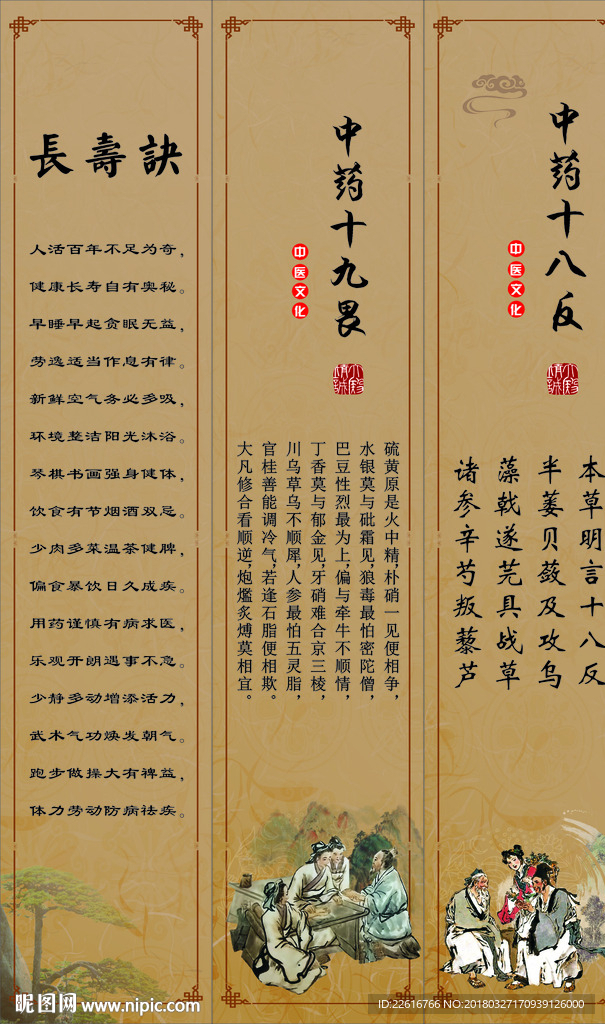 長壽訣
人活百年不足为奇，
健康长寿自有奥秘。
早睡早起贪眠无益，
劳逸适当作息有律。
新鲜空气务必多吸，
环境整洁阳光沐浴。
琴棋书画强身健体，
饮食有节烟酒双忌。
少肉多菜温茶健脾，
偏食暴饮日久成疾。
用药谨慎有病求医，
乐观开朗遇事不急。
少静多动增添活力，
武术气功焕发朝气。
跑步做操大有裨益，
体力劳动防病祛疾。
中药十九畏
中医文化
硫黄原是火中精，朴硝一见便相争，
水银莫与砒霜见，狼毒最怕密陀僧，
巴豆性烈最为上，偏与牵牛不顺情，
丁香莫与郁金见，牙硝难合京三棱，
川乌草乌不顺犀，人参最怕五灵脂，
官桂善能调冷气，若逢石脂便相欺。
大凡修合看顺逆，炮爁炙煿莫相宜。
中药十八反
中医文化
本草明言十八反
半蒌贝蔹及攻乌
藻戟遂芫具战草
诸参辛芍叛藜芦
昵图网 www.nipic.com
ID:22616766 NO:20180327170939126000